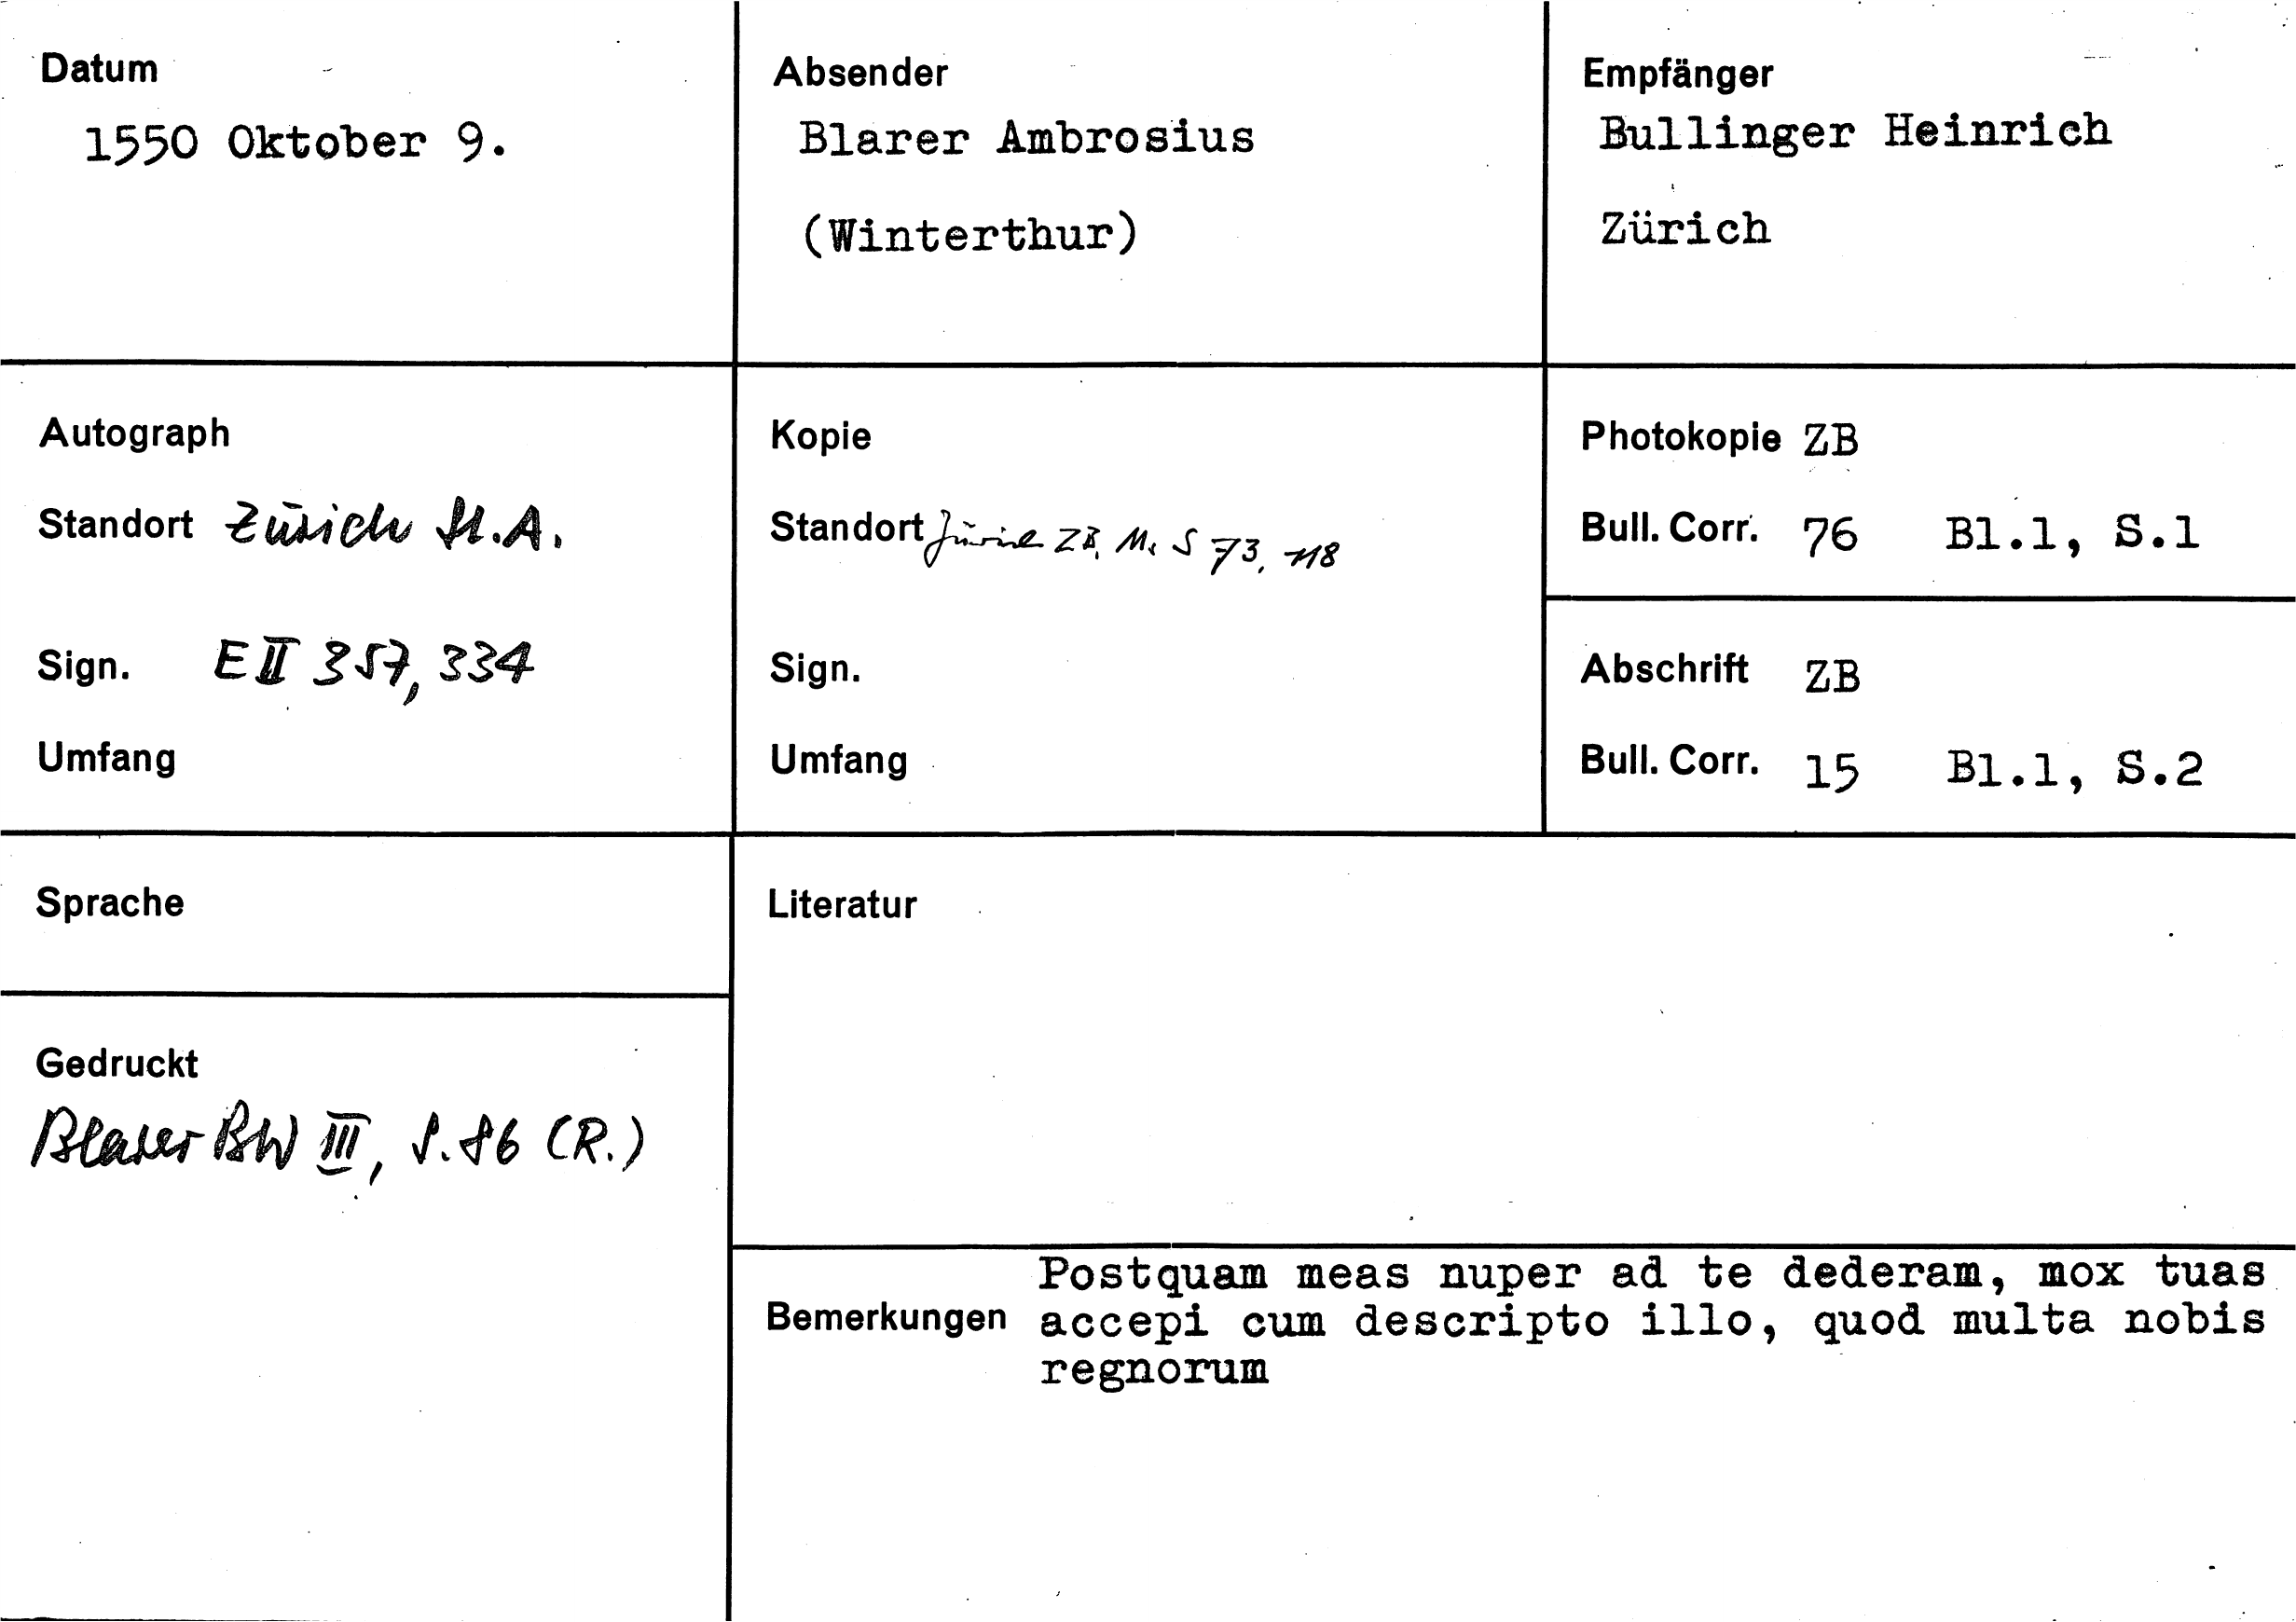 Datum
1550 Oktober 9.
Absender
Blarer Ambrosius
(Winterthur)
Empfänger
Bullinger Heinrich
Zürich
Autograph
Standort Zürich St.A.
Sign. E II 357, 334
Umfang
Kopie
Standort Zürich ZB, Ms S 73, 118
Sign.
Umfang
Photokopie ZB
Bull. Corr. 76 Bl.1, S.1
Abschrift ZB
Bull. Corr. 15 Bl.1, S.2
Sprache
Literatur
Gedruckt
Blarer BW III, S. 86 (R.)
Bemerkungen
Postquam meas nuper ad te dederam, mox tuas
accepi cum descripto illo, quod multa nobis
regnorum